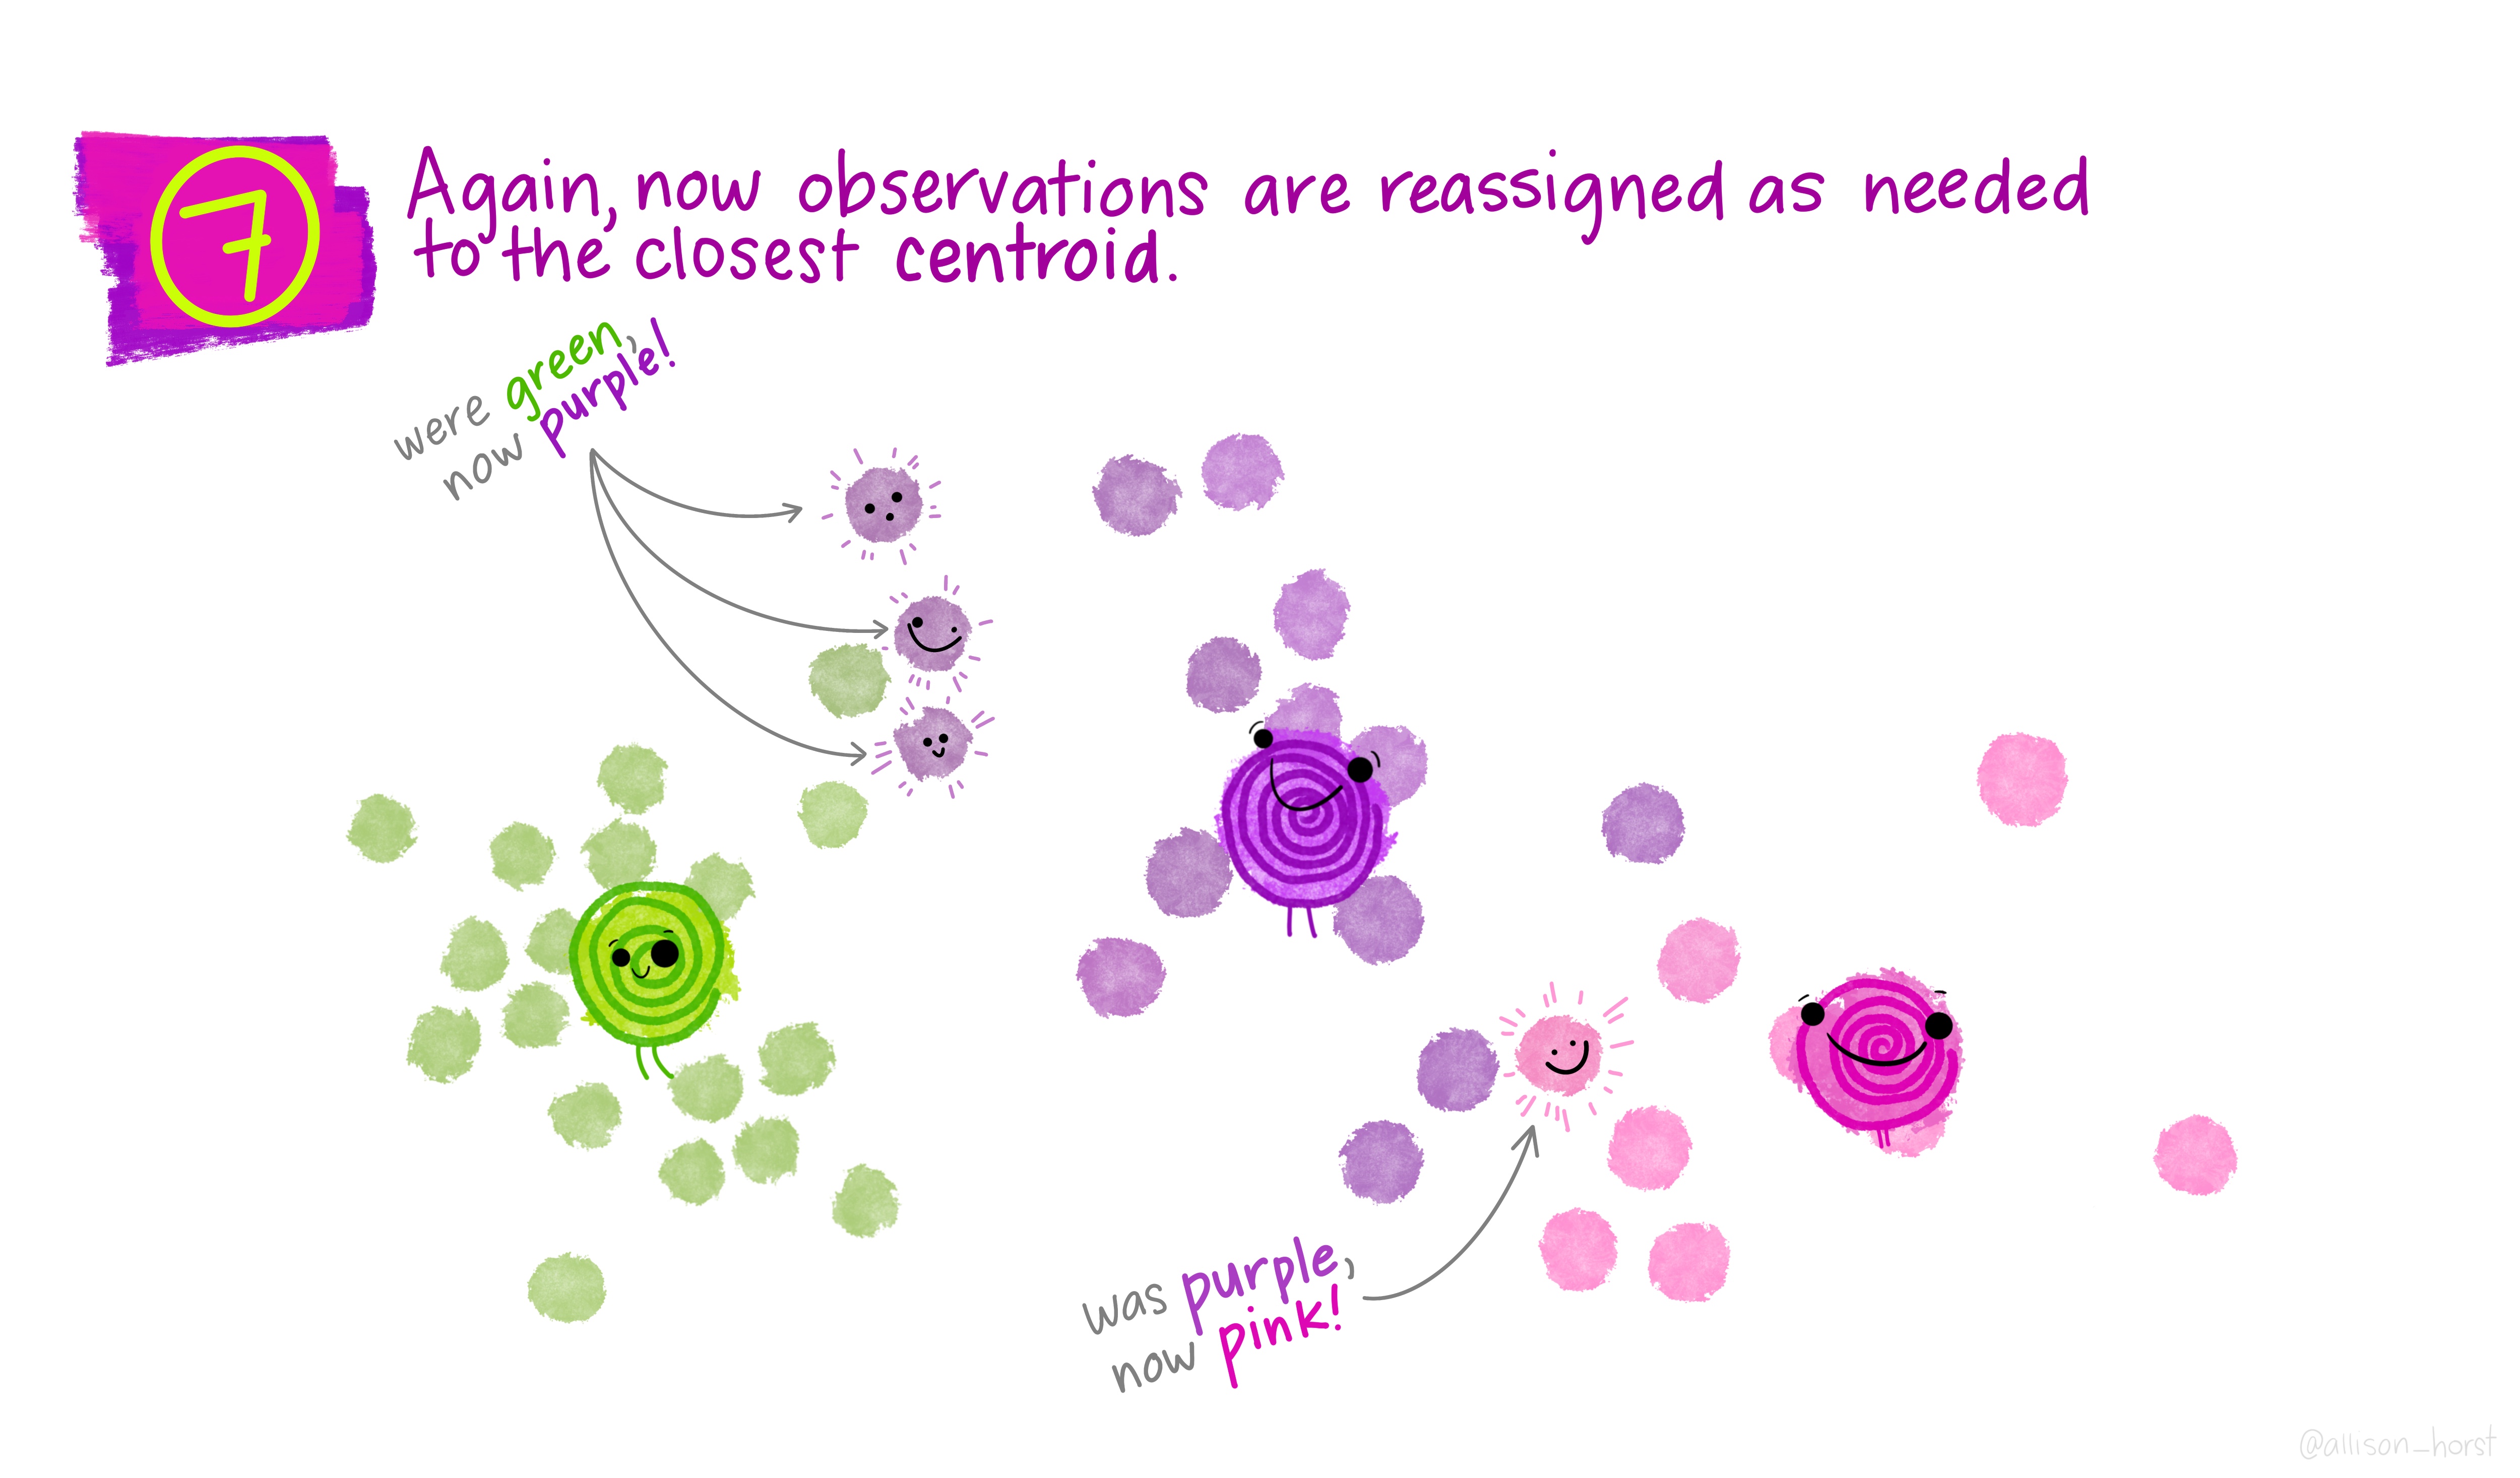 7
Again, now observations are reassigned as needed
to the closest centroid.
were green,
now purple!
was purple,
now pink!
@allison_horst